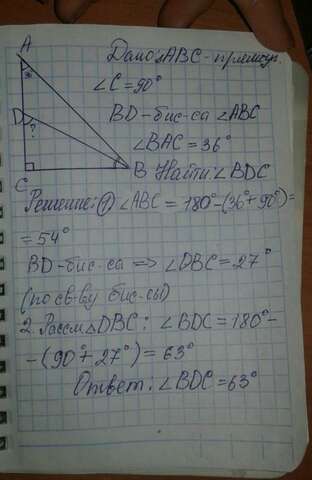 A
Дано: △ABC - прямоуг.
∠C = 90°
D
?
BD - бис-са ∠ABC
∠BAC = 36°
C
B Найти: ∠BDC
Решение: ① ∠ABC = 180° - (36° + 90°) =
= 54°
BD - бис-са => ∠DBC = 27°
(по св-ву бис-сы)
2. Рассм △DBC: ∠BDC = 180° -
- (90° + 27°) = 63°
Ответ: ∠BDC = 63°